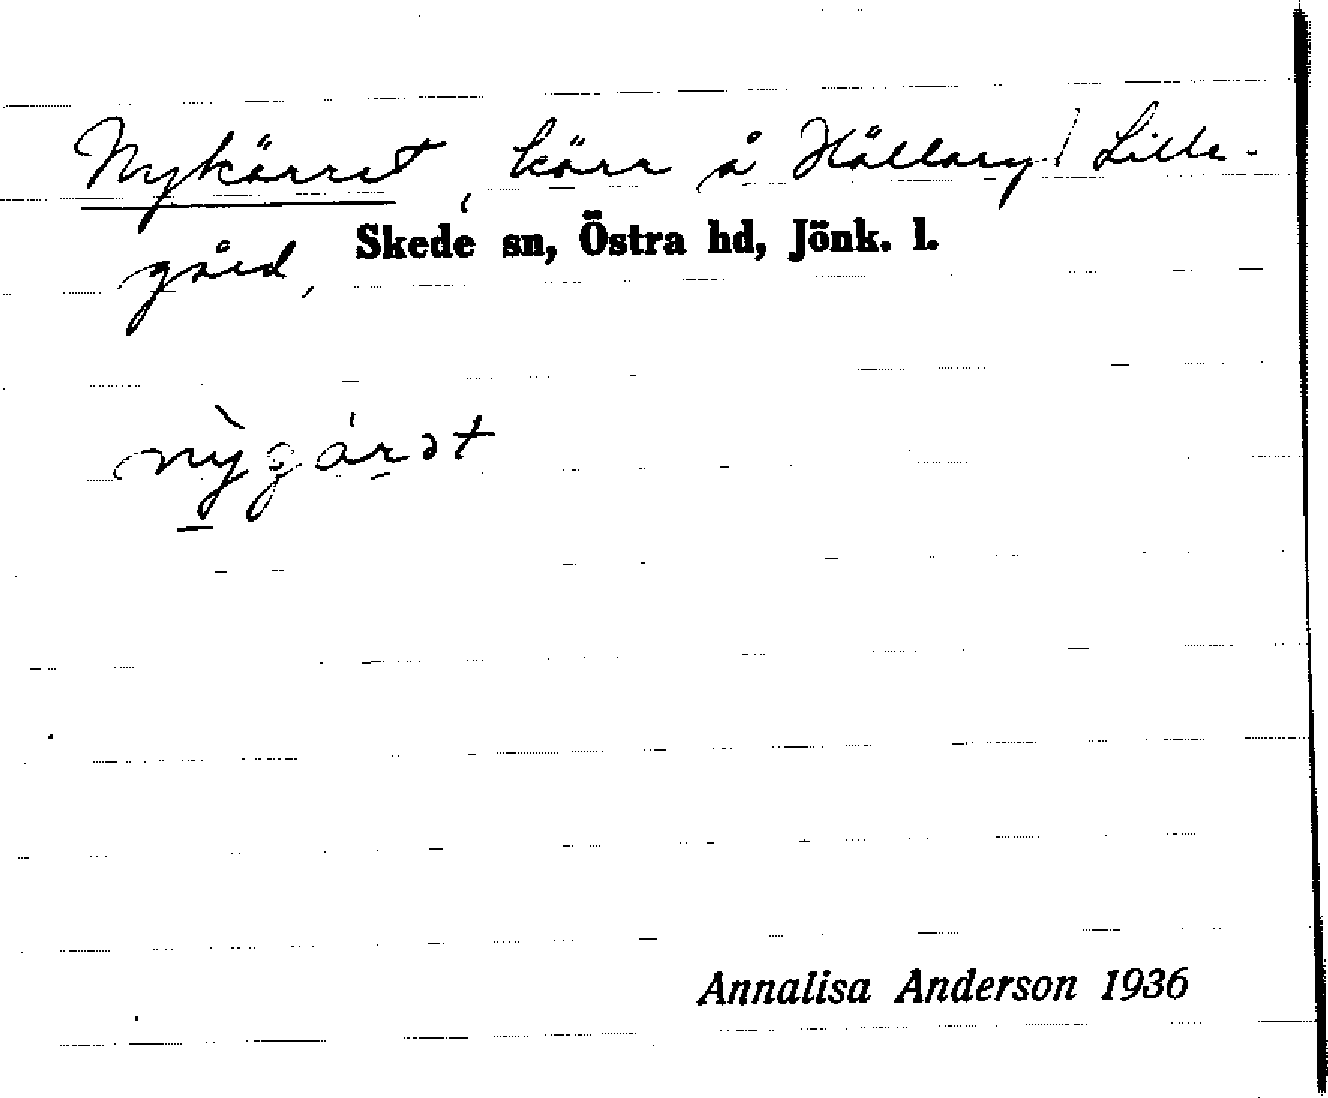 Nykärret, kärr å Hållary / Lille-
gård, Skede sn, Östra hd, Jönk. l.
nỳgárət
Annalisa Anderson 1936